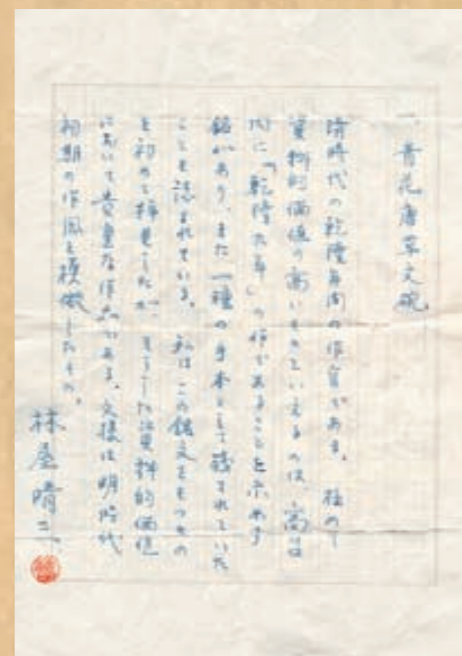 一 青花唐草文碗
清時代の乾隆年間の作首である。極めて
資料的価値の高いものといえるのは、高台
内に「乾隆九年」の作であることを示めす
銘があり、また一種の手本として残されていた
ことも誌されている。私はこの銘文をもつもの
を初めて拝見したが、そうした資料的価値
において貴重な作品である。文様は明時代
初期の作風を模倣したもの。
林屋晴三